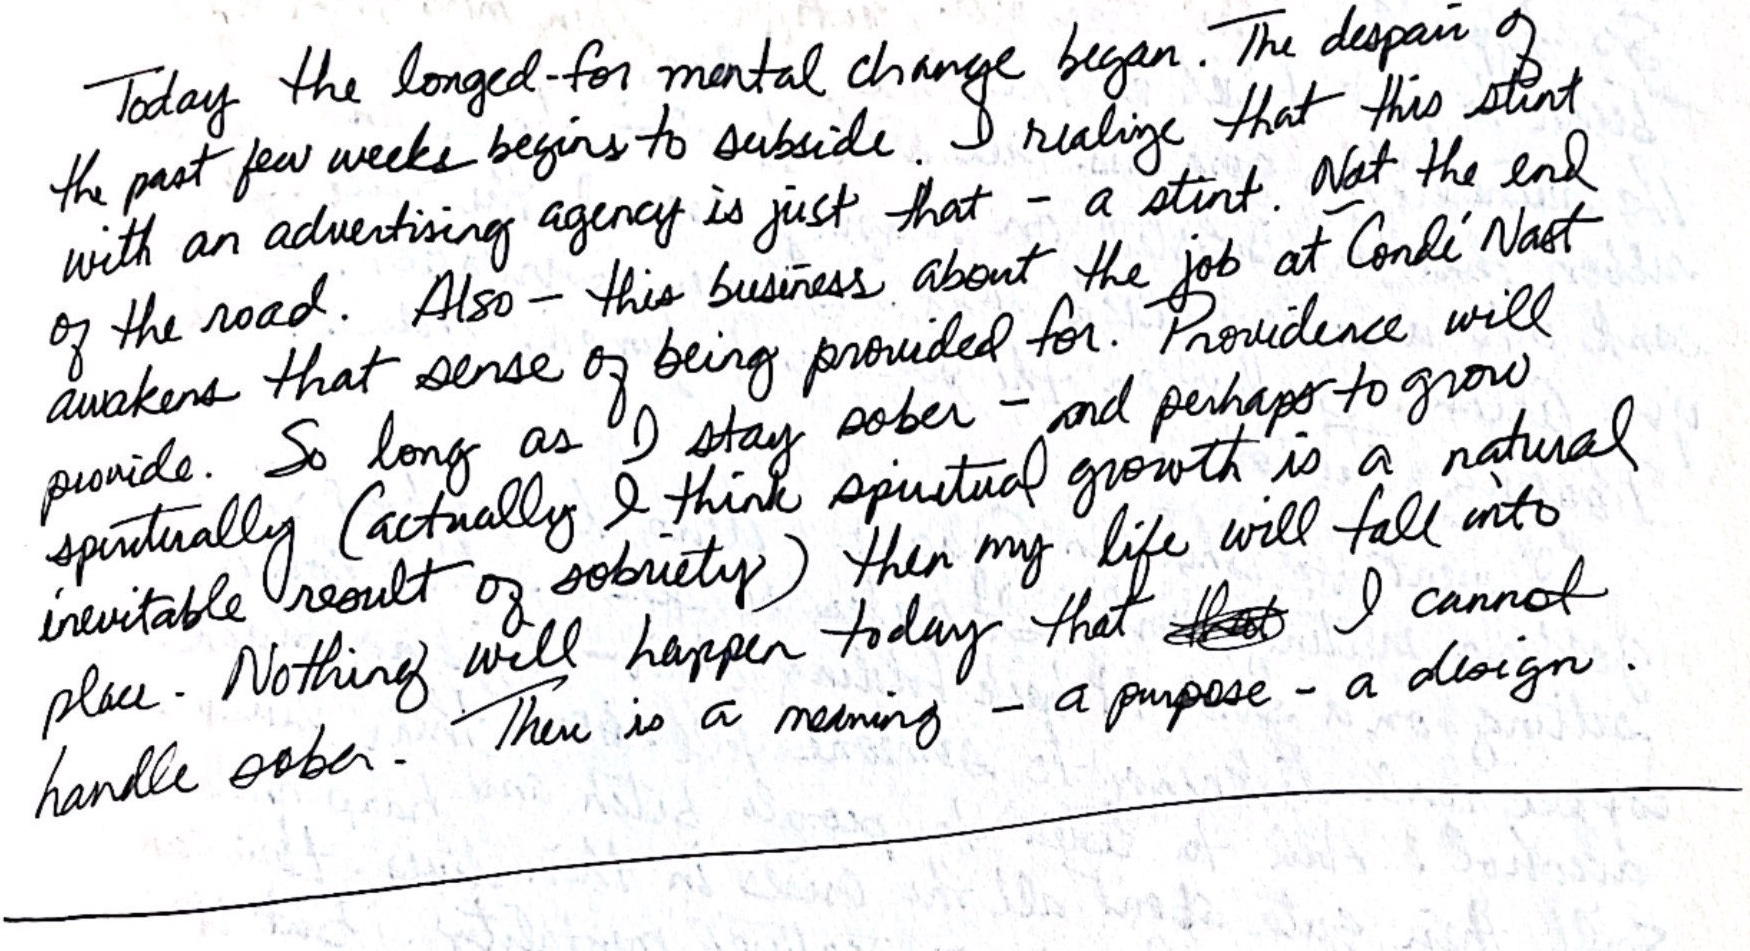 Today the longed-for mental change began. The despair of
the past few weeks begins to subside. I realize that this stint
with an advertising agency is just that - a stint. Not the end
of the road. Also - this business about the job at Condé Nast
awakens that sense of being provided for. Providence will
provide. So long as I stay sober - and perhaps to grow
spiritually (actually I think spiritual growth is a natural
inevitable result of sobriety) then my life will fall into
place. Nothing will happen today that I cannot
handle sober. There is a meaning - a purpose - a design.